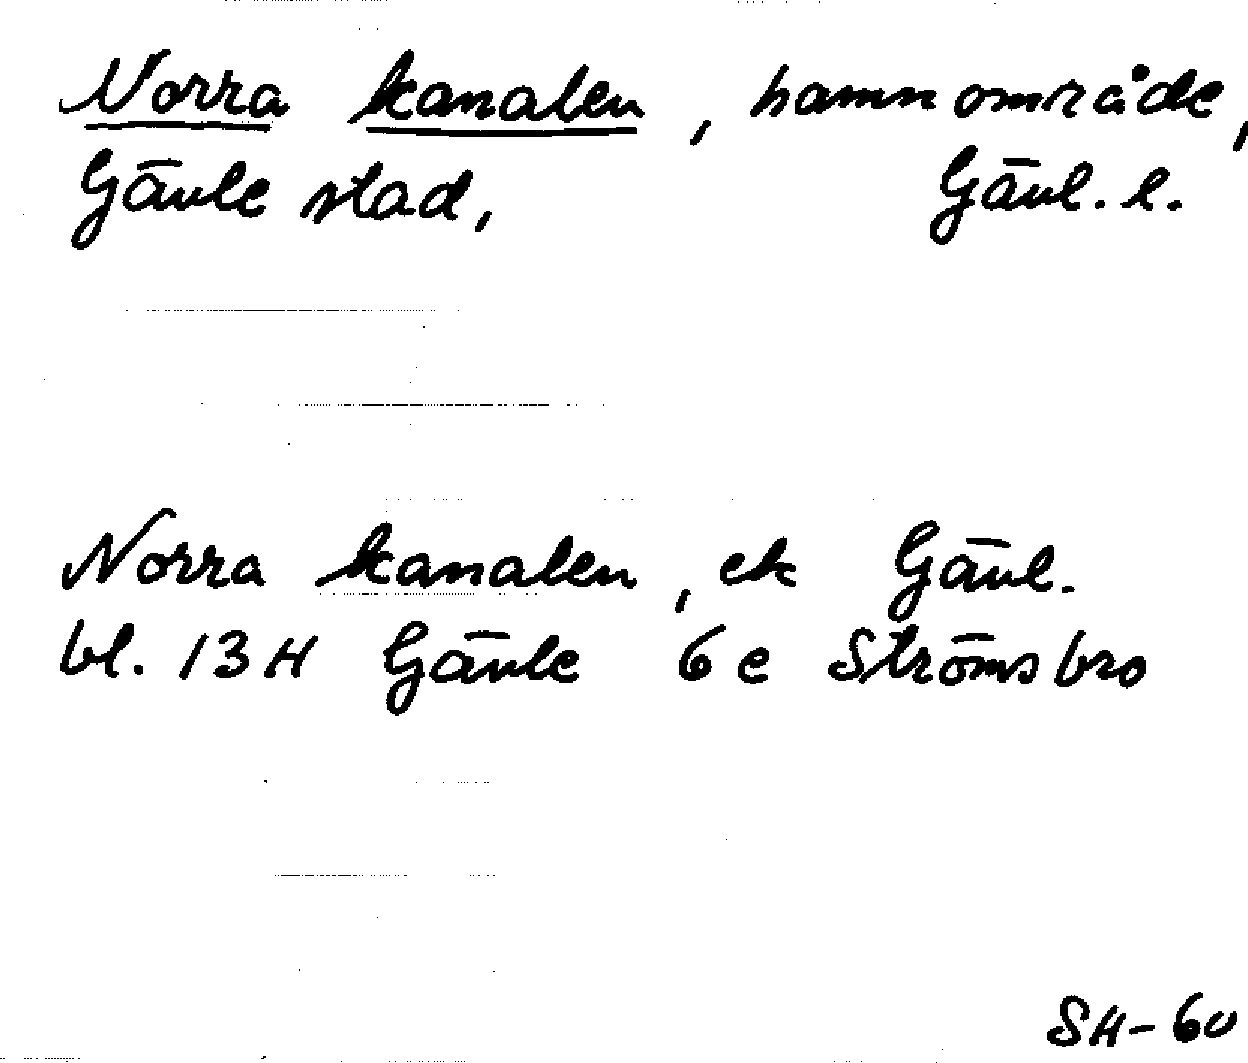 Norra kanalen, hamnområde,
Gävle stad, Gävl. l.
Norra kanalen, ek Gävl.
bl. 13H Gävle 6e Strömsbro
SH-60